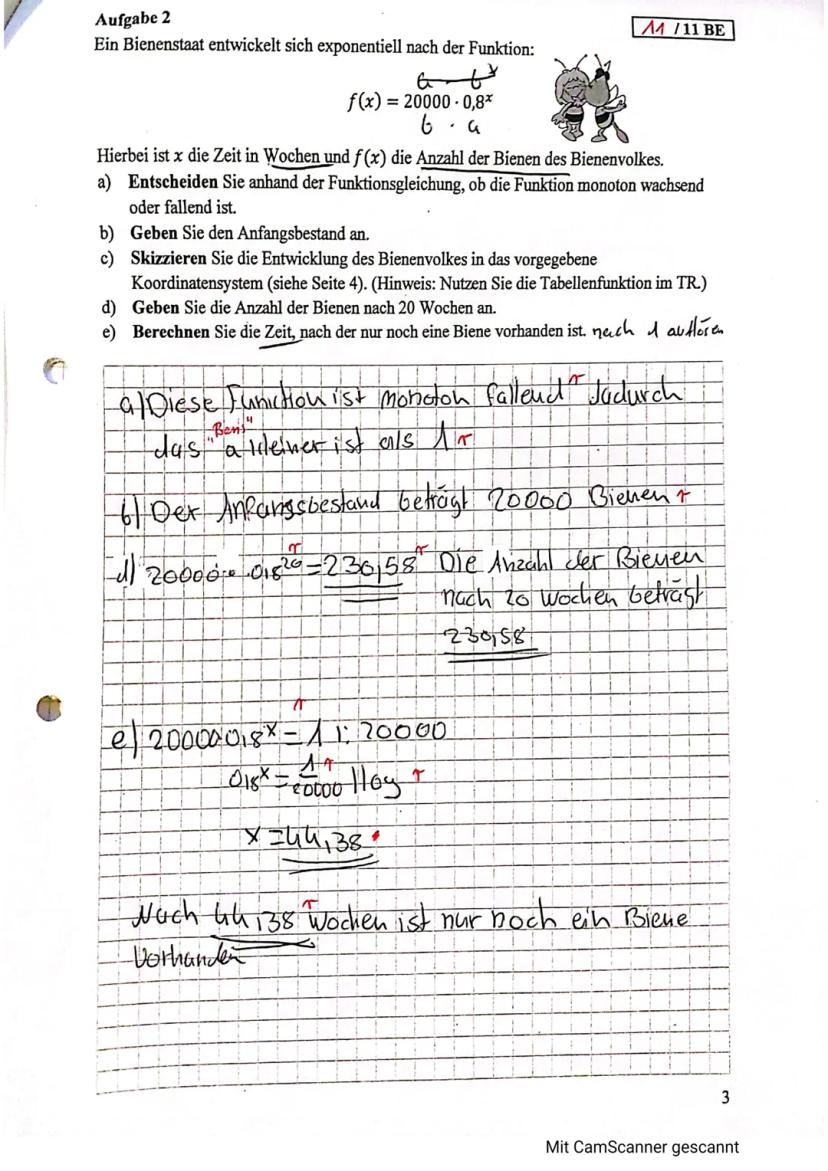 Aufgabe 2
11 / 11 BE
Ein Bienenstaat entwickelt sich exponentiell nach der Funktion:
f(x) = 20000 · 0,8ˣ
b · a
Hierbei ist x die Zeit in Wochen und f(x) die Anzahl der Bienen des Bienenvolkes.
a) Entscheiden Sie anhand der Funktionsgleichung, ob die Funktion monoton wachsend
oder fallend ist.
b) Geben Sie den Anfangsbestand an.
c) Skizzieren Sie die Entwicklung des Bienenvolkes in das vorgegebene
Koordinatensystem (siehe Seite 4). (Hinweis: Nutzen Sie die Tabellenfunktion im TR.)
d) Geben Sie die Anzahl der Bienen nach 20 Wochen an.
e) Berechnen Sie die Zeit, nach der nur noch eine Biene vorhanden ist. nach 1 auflösen
a) Diese Funktion ist monoton fallend dadurch
das a kleiner ist als 1
b) Der Anfangsbestand beträgt 20000 Bienen
d) 20000 · 0,8²⁰ = 230,58 Die Anzahl der Bienen
nach 20 Wochen beträgt
230,58
e) 20000·0,8ˣ = 1 |: 20000
0,8ˣ = 1/20000 | log
x = 44,38
Nach 44,38 Wochen ist nur noch ein Biene
Vorhanden
3
Mit CamScanner gescannt